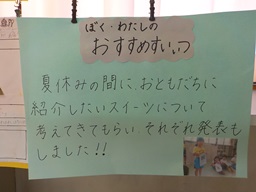 ぼく・わたしの
おすすめすいーつ
夏休みの間に、おともだちに
紹介したいスイーツについて
考えてきてもらい それぞれ発表も
しました!!